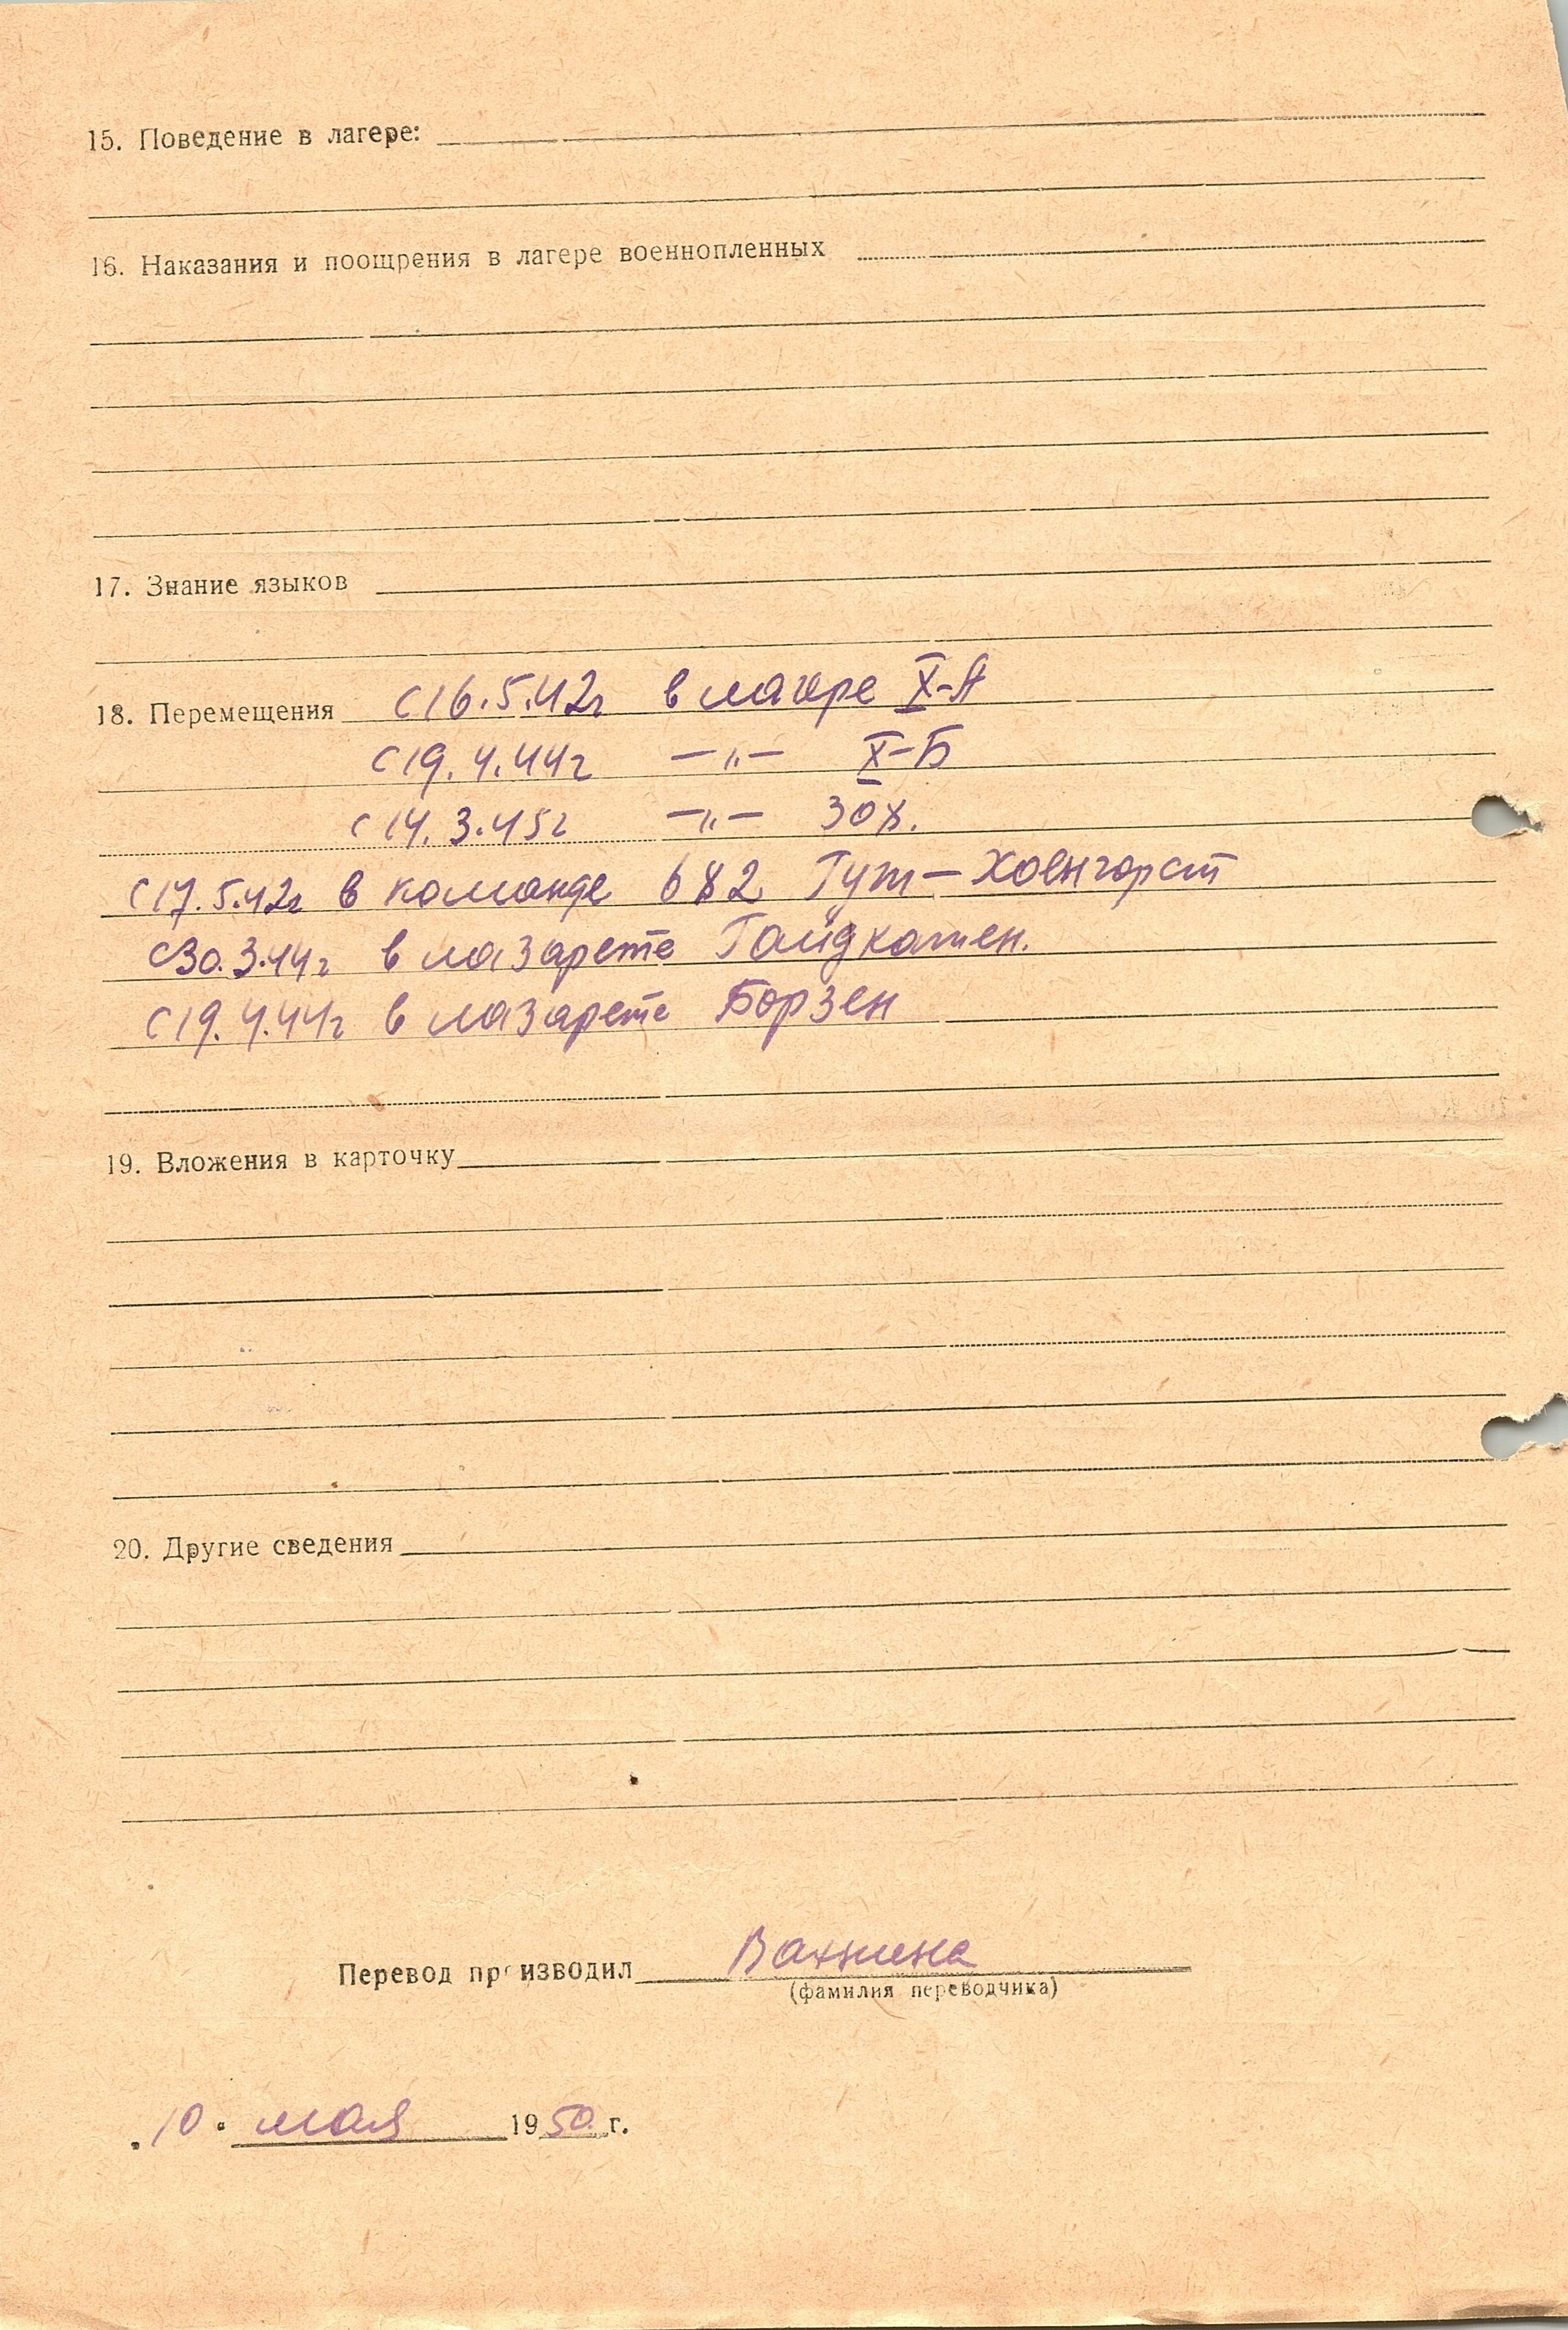 15. Поведение в лагере:
16. Наказания и поощрения в лагере военнопленных
17. Знание языков
18. Перемещения с 16.5.42г в лагере X-А
с 19.4.44г —„— X-Б
с 14.3.45г —„— 30х.
с 17.5.42г в команде 682 Гут-Хоенгорст
с 30.3.44г в лазарете Гайдкатен.
с 19.4.44г в лазарете Борзен
19. Вложения в карточку
20. Другие сведения
Перевод производил Вахнина
(фамилия переводчика)
„10" мая 1950 г.